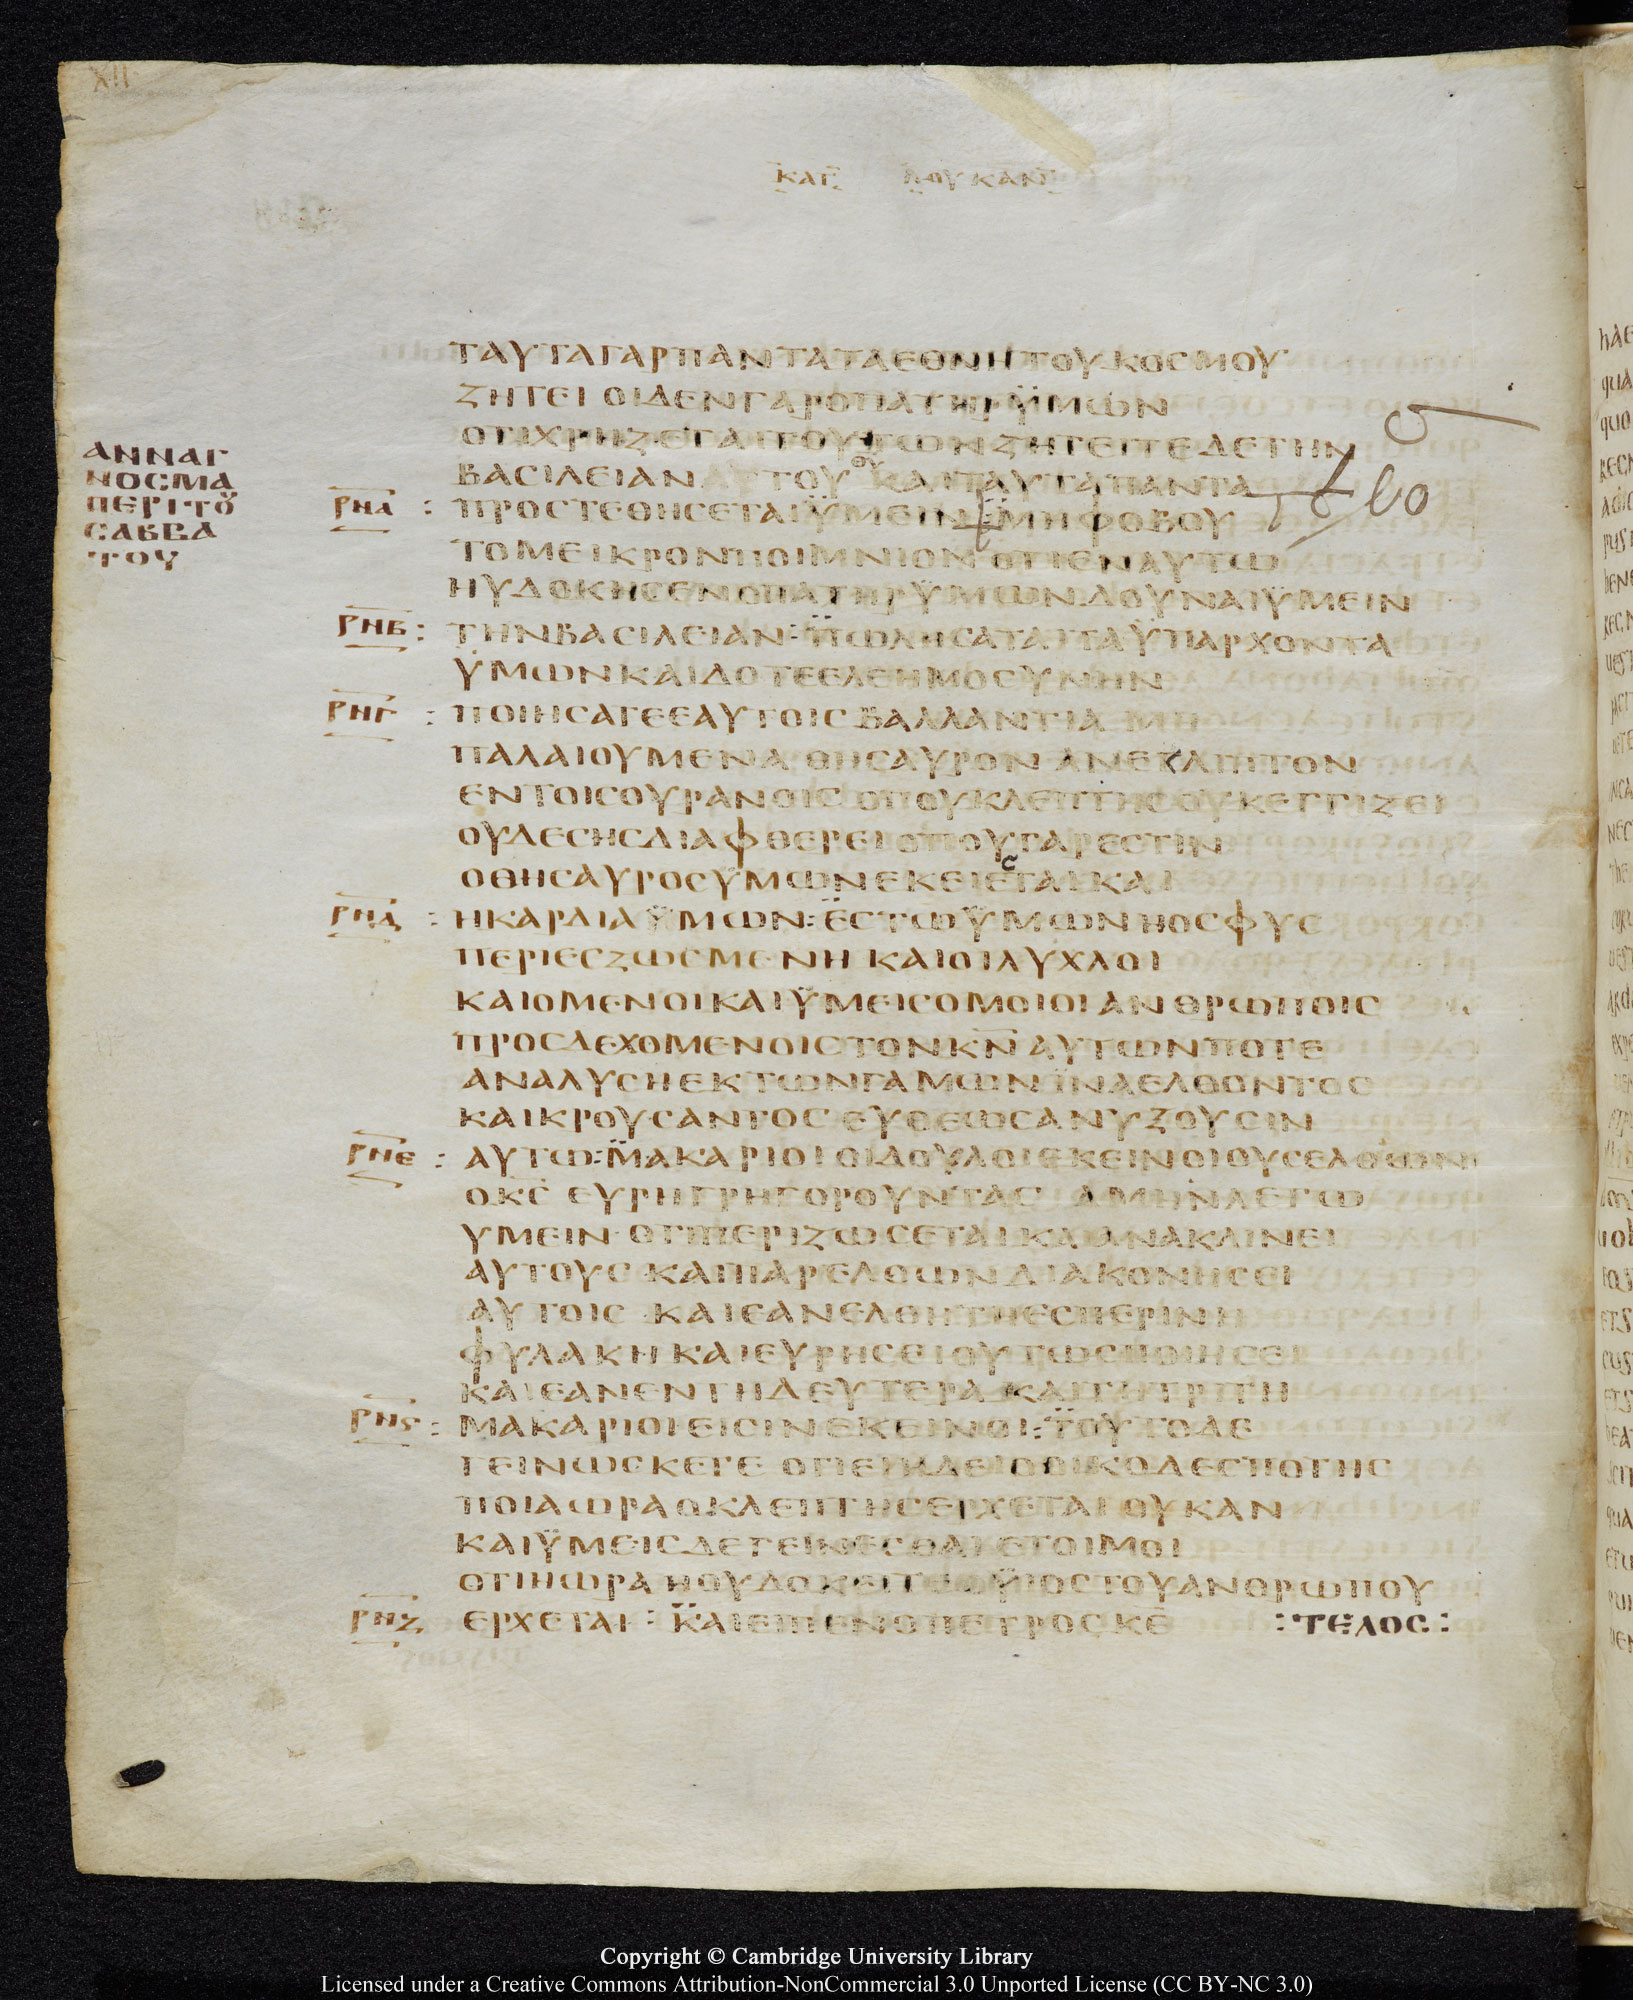 XII
ΚΑΤ ΛΟΥΚΑΝ
ΤΑΥΤΑ ΓΑΡ ΠΑΝΤΑ ΤΑ ΕΘΝΗ ΤΟΥ ΚΟΣΜΟΥ
ΖΗΤΕΙ ΟΙΔΕΝ ΓΑΡ Ο ΠΑΤΗΡ ΫΜΩΝ
ΟΤΙ ΧΡΗΖΕΤΑΙ ΤΟΥΤΩΝ ΖΗΤΕΙΤΕ ΔΕ ΤΗΝ
ΒΑΣΙΛΕΙΑΝ ΑΥΤΟΥ ΚΑΙ ΤΑΥΤΑ ΠΑΝΤΑ
ΑΝΝΑΓ
ΝΟΣΜΑ
ΠΕΡΙ ΤΟΥ
ΣΑΒΒΑ
ΤΟΥ
ΡΗΑ : ΠΡΟΣΤΕΘΗΣΕΤΑΙ ΫΜΕΙΝ : ΜΗ ΦΟΒΟΥ
ΤΟ ΜΕΙΚΡΟΝ ΠΟΙΜΝΙΟΝ ΟΤΙ ΕΝ ΑΥΤΩ
ΗΥΔΟΚΗΣΕΝ Ο ΠΑΤΗΡ ΫΜΩΝ ΔΟΥΝΑΙ ΫΜΕΙΝ
ΡΗΒ : ΤΗΝ ΒΑΣΙΛΕΙΑΝ : ΠΩΛΗΣΑΤΑΙ ΤΑ ΫΠΑΡΧΟΝΤΑ
ΫΜΩΝ ΚΑΙ ΔΟΤΕ ΕΛΕΗΜΟΣΥΝΗΝ
ΡΗΓ : ΠΟΙΗΣΑΤΕ ΕΑΥΤΟΙΣ ΒΑΛΛΑΝΤΙΑ ΜΗ
ΠΑΛΑΙΟΥΜΕΝΑ ΘΗΣΑΥΡΟΝ ΑΝΕΚΛΙΠΤΟΝ
ΕΝ ΤΟΙΣ ΟΥΡΑΝΟΙΣ ΟΠΟΥ ΚΛΕΠΤΗΣ ΟΥΚ ΕΓΓΙΖΕΙ
ΟΥΔΕ ΣΗΣ ΔΙΑΦΘΕΡΕΙ ΟΠΟΥ ΓΑΡ ΕΣΤΙΝ
Ο ΘΗΣΑΥΡΟΣ ΫΜΩΝ ΕΚΕΙ ΕΣΤΑΙ ΚΑΙ
ΡΗΔ : Η ΚΑΡΔΙΑ ΫΜΩΝ : ΕΣΤΩ ΫΜΩΝ Η ΟΣΦΥΣ
ΠΕΡΙΕΣΖΩΣΜΕΝΗ ΚΑΙ ΟΙ ΛΥΧΛΟΙ
ΚΑΙΟΜΕΝΟΙ ΚΑΙ ΫΜΕΙΣ ΟΜΟΙΟΙ ΑΝΘΡΩΠΟΙΣ
ΠΡΟΣΔΕΧΟΜΕΝΟΙΣ ΤΟΝ ΚΝ ΑΥΤΩΝ ΠΟΤΕ
ΑΝΑΛΥΣΗ ΕΚ ΤΩΝ ΓΑΜΩΝ ΪΝΑ ΕΛΘΟΝΤΟΣ
ΚΑΙ ΚΡΟΥΣΑΝΤΟΣ ΕΥΘΕΩΣ ΑΝΥΖΟΥΣΙΝ
ΡΗΕ : ΑΥΤΩ : ΜΑΚΑΡΙΟΙ ΟΙ ΔΟΥΛΟΙ ΕΚΕΙΝΟΙ ΟΥΣ ΕΛΘΩΝ
Ο ΚΣ ΕΥΡΗ ΓΡΗΓΟΡΟΥΝΤΑΣ ΑΜΗΝ ΛΕΓΩ
ΥΜΕΙΝ ΟΤΙ ΠΕΡΙΖΩΣΕΤΑΙ ΚΑΙ ΑΝΑΚΛΙΝΕΙ
ΑΥΤΟΥΣ ΚΑΙ ΠΑΡΕΛΘΩΝ ΔΙΑΚΟΝΗΣΕΙ
ΑΥΤΟΙΣ ΚΑΙ ΕΑΝ ΕΛΘΗ ΤΗ ΕΣΠΕΡΙΝΗ
ΦΥΛΑΚΗ ΚΑΙ ΕΥΡΗΣΕΙ ΟΥΤΩΣ ΠΟΙΗΣΕΙ
ΚΑΙ ΕΑΝ ΕΝ ΤΗ ΔΕΥΤΕΡΑ ΚΑΙ ΤΗ ΤΡΙΤΗ
ΡΗϚ : ΜΑΚΑΡΙΟΙ ΕΙΣΙΝ ΕΚΕΙΝΟΙ : ΤΟΥΤΟ ΔΕ
ΓΕΙΝΩΣΚΕΤΕ ΟΤΙ ΕΙ ΗΔΕΙ Ο ΟΙΚΟΔΕΣΠΟΤΗΣ
ΠΟΙΑ ΩΡΑ Ο ΚΛΕΠΤΗΣ ΕΡΧΕΤΑΙ ΟΥΚ ΑΝ
ΚΑΙ ΫΜΕΙΣ ΔΕ ΓΕΙΝΕΣΘΑΙ ΕΤΟΙΜΟΙ
ΟΤΙ Η ΩΡΑ Η ΟΥ ΔΟΚΕΙΤΕ Ο ΫΙΟΣ ΤΟΥ ΑΝΘΡΩΠΟΥ
ΡΗΖ ΕΡΧΕΤΑΙ : ΚΑΙ ΕΙΠΕΝ Ο ΠΕΤΡΟΣ ΚΕ : ΤΕΛΟΣ :
Copyright © Cambridge University Library
Licensed under a Creative Commons Attribution-NonCommercial 3.0 Unported License (CC BY-NC 3.0)